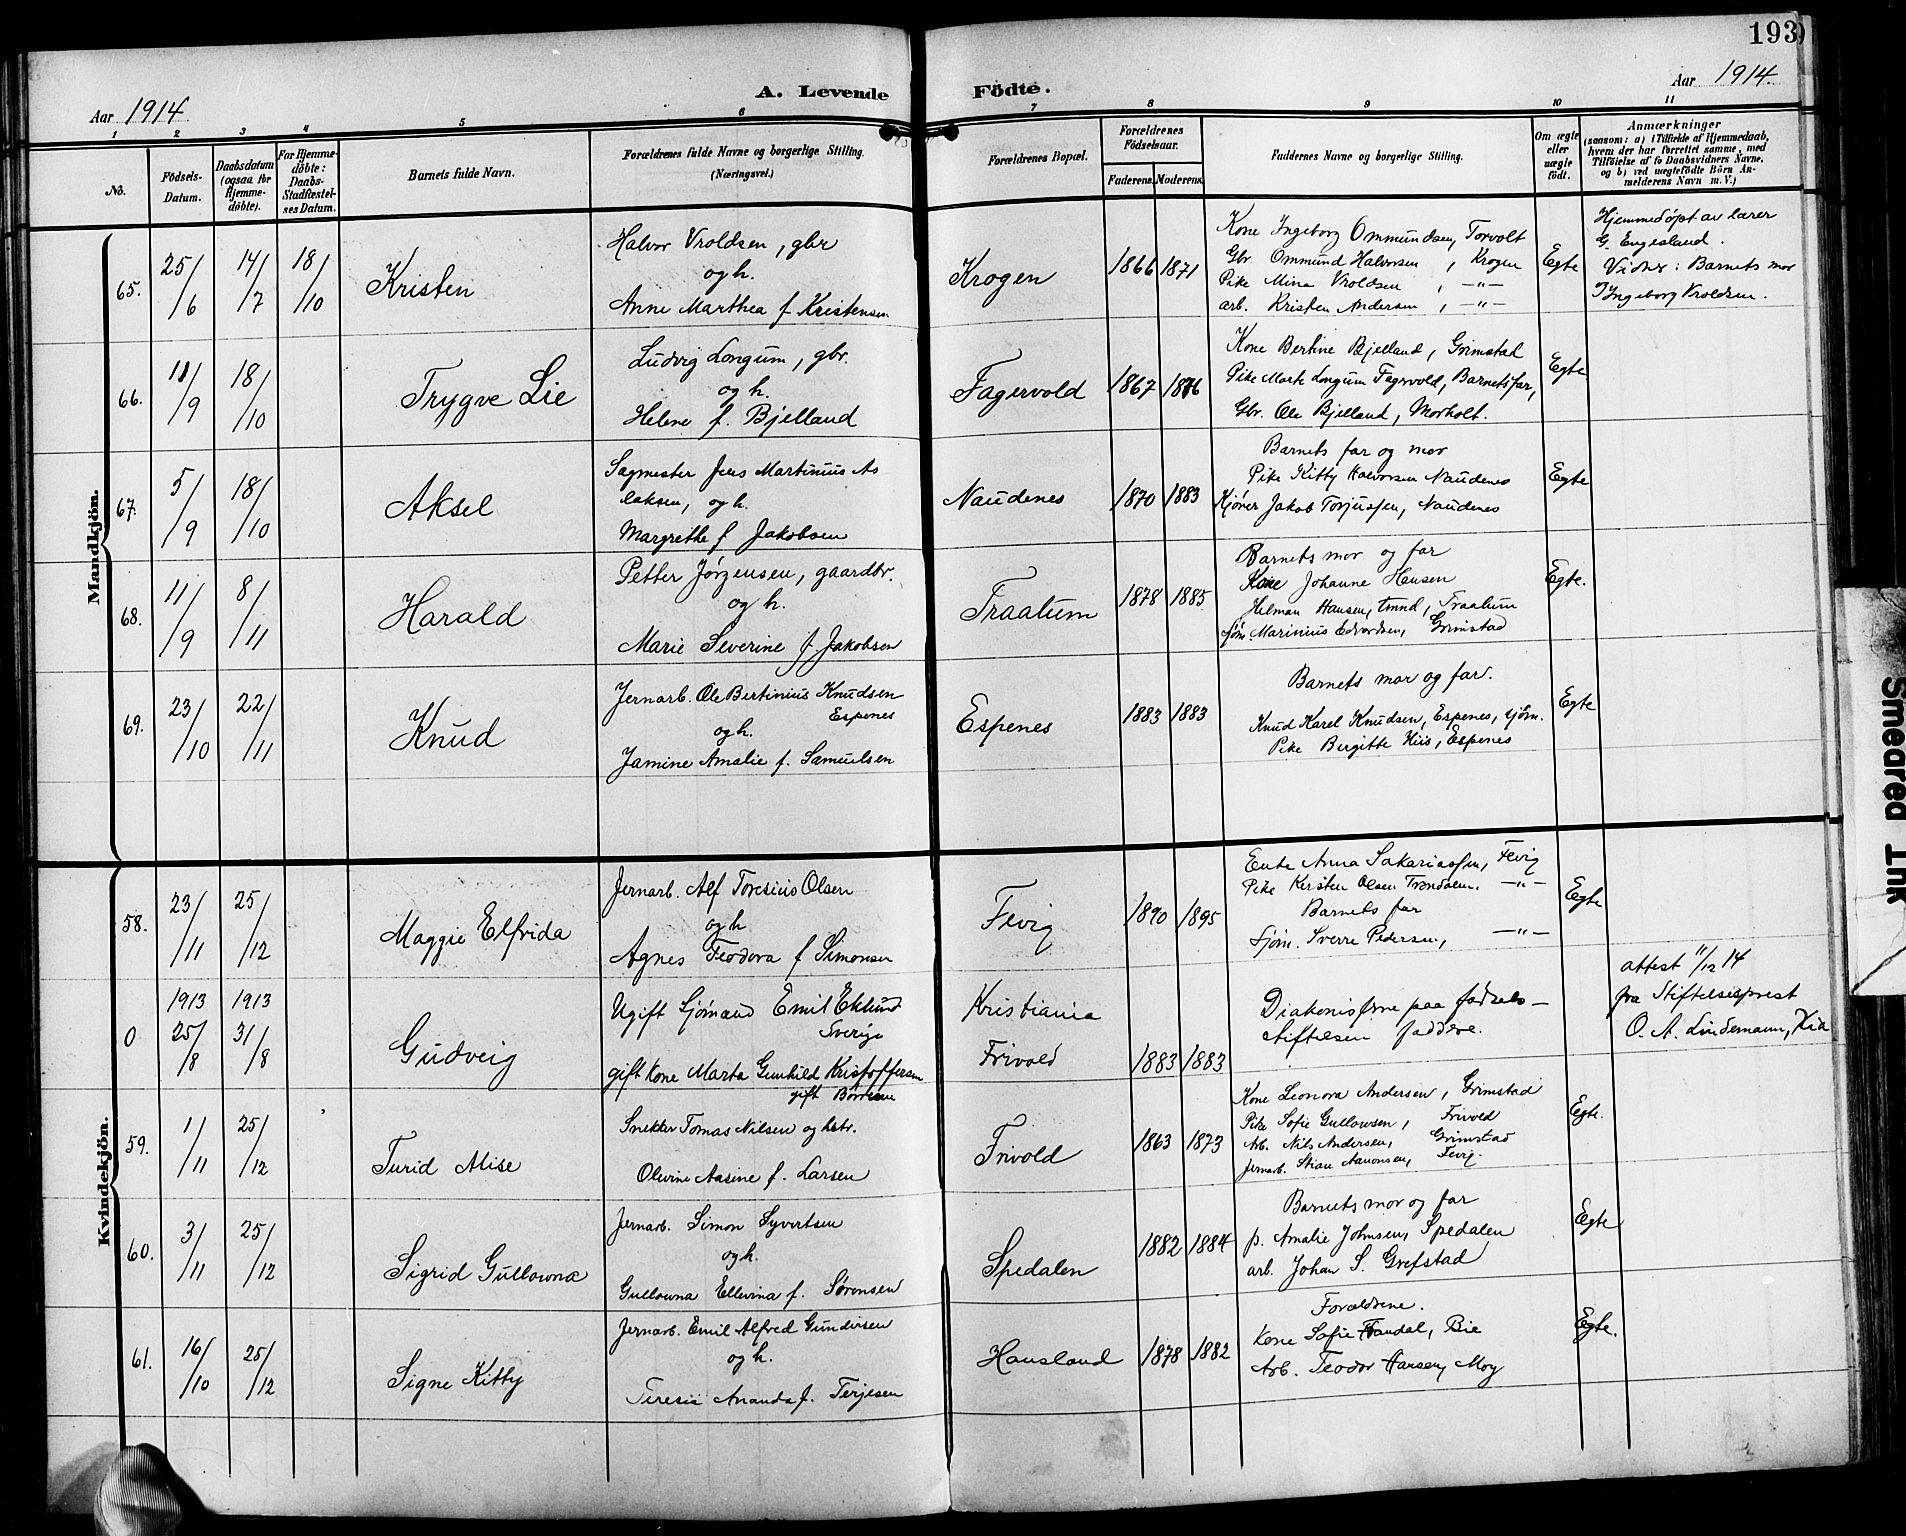 193
Aar 1914
A. Levende
Födte.
Aar 1914.
1 2 3 4 5 6 7 8 9 10 11
No.
Födsels-
Datum.
Daabsdatum
(ogsaa for
Hjemme-
döbte).
For Hjemme-
döbte:
Daabs-
Stadfæstel-
ses Datum.
Barnets fulde Navn.
Forældrenes fulde Navne og borgerlige Stilling.
(Næringsvei.)
Forældrenes Bopæl.
Forældrenes
Födselsaar.
Faderens. Moderens.
Faddernes Navne og borgerlige Stilling.
Om ægte
eller
uægte
født.
Anmærkninger
(saasom: a) i Tilfælde af Hjemmedaab,
hvem der har forrettet samme, med
Tilföielse af to Daabsvidners Navne,
og b) ved uægtefödte Börn An-
melderens Navn m. V.)
Mandkjön.
65.
25/6
14/7
18/10
Kristen
Halvor Vroldsen, gbr
og h.
Anne Marthea f Kristensen
Krogen
1866 1871
Kone Ingeborg Ommundsen, Torvolt
Gbr. Ommund Halvorsen, Krogen
Pike Mina Vroldsen, —"—
arb. Kristen Andersen, —"—
Egte
Hjemmedøpt av lærer
G. Engesland.
Vidner: Barnets mor
Ingeborg Vroldsen.
66.
11/9
18/10
Trygve Lie
Ludvig Longum, gbr.
og h.
Helene f. Bjelland
Fagervold
1867 1876
Kone Bertine Bjelland, Grimstad
Pike Marte Longum Fagervold, Barnets far,
Gbr. Ole Bjelland, Morholt.
Egte
67.
5/9
18/10
Aksel
Sagmester Jens Martinius As
laksen, og h.
Margrethe f Jakobsen
Naudenes
1870 1883
Barnets far og mor
Pike Kitty Halvorsen Naudenes
Kjører Jakob Torjussen, Naudenes
Egte
68.
11/9
8/11
Harald
Petter Jørgensen, gaardbr.
og h.
Marie Severine f. Jakobsen
Traalum
1878 1885
Barnets mor og far
Kone Johanne Hansen
Helman Hansen, tmnd, Traalum
Sjøm. Marinius Edvardsen, Grimstad
Egte.
69.
23/10
22/11
Knud
Jernarb. Ole Bertinius Knudsen
Espenes
og h.
Jamine Amalie f. Samuelsen
Espenes
1883 1883
Barnets mor og far.
Knud Karel Knudsen, Espenes, sjøm.
Pike Bergitte Hiis, Espenes
Egte
Kvindekjön.
58.
23/11
25/12
Maggie Elfrida
Jernarb. Alf Toresius Olsen
og h
Agnes Teodora f Simonsen
Fevig
1890 1895
Enke Anna Sakariassen, Fevig
Pike Kirsten Olsen —"—
Barnets far
Sjøm. Sverre Pedersen, —"—
Egte
0
1913
25/8
1913
31/8
Gudveig
Ugift Sjømand Emil Eklund
Sverige
gift kone Marta Gunhild Kristoffersen
gift
Kristiania
Frivold
1883 1883
Diakonisserne paa fødsels—
stiftelsen faddere.
attest 11/12 14
fra Stiftelsesprest
O. A. Lindemann, Kra
59.
1/11
25/12
Turid Alise
Snekker Tomas Nilsen og hstr.
Olivine Aasine f. Larsen
Frivold
1863 1873
Kone Leonora Andersen, Grimstad
Pike Sofie Gullowsen, Frivold
Arb. Nils Andersen, Grimstad
Jernarb. Stian Aanonsen, Fevig.
Egte.
60.
3/11
25/12
Sigrid Gullowna
Jernarb. Simon Syvertsen
og h.
Gullowna Ellevina f. Sørensen
Spedalen
1882 1884
Barnets mor og far
p. Amalie Johnsen, Spedalen
arb. Johan S. Grefstad
Egte
61.
16/10
25/12
Signe Kitty
Jernarb. Emil Alfred Gundersen
og h.
Teresie Ananda f. Terjesen
Hausland
1878 1882
Forældrene.
Kone Sofie Haudal, Bie
Arb. Teodor Hansen, Moy
Egte.
Smeared Ink